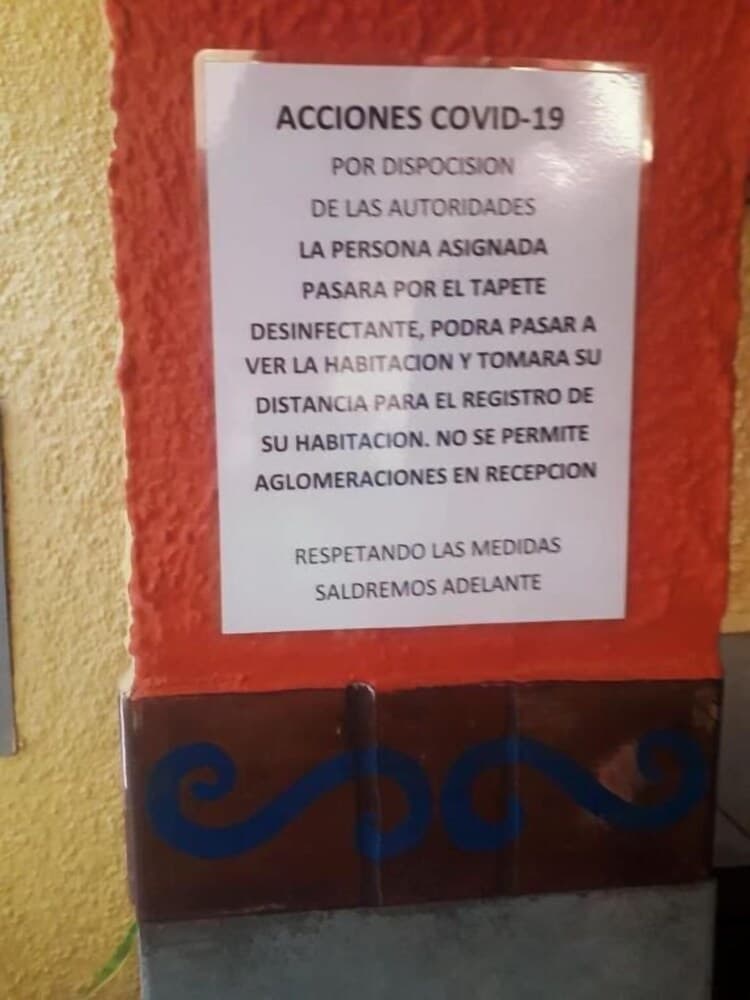 ACCIONES COVID-19
POR DISPOCISION
DE LAS AUTORIDADES
LA PERSONA ASIGNADA
PASARA POR EL TAPETE
DESINFECTANTE, PODRA PASAR A
VER LA HABITACION Y TOMARA SU
DISTANCIA PARA EL REGISTRO DE
SU HABITACION. NO SE PERMITE
AGLOMERACIONES EN RECEPCION
RESPETANDO LAS MEDIDAS
SALDREMOS ADELANTE